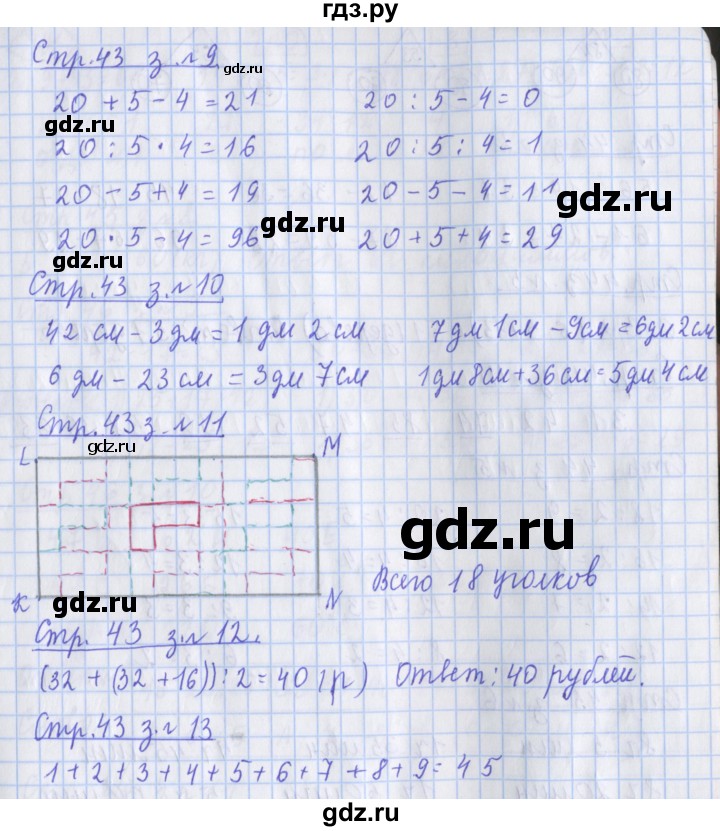 гдз.ру
Стр.43 з.№9
gdz.ru
20 + 5 - 4 = 21 20 : 5 - 4 = 0
gdz.ru
gdz.ru
20 : 5 · 4 = 16 20 : 5 : 4 = 1
20 - 5 + 4 = 19 20 - 5 - 4 = 11
gdz.ru
gdz.ru
20 · 5 - 4 = 96 20 + 5 + 4 = 29
gdz.ru
Стр.43 з.№10
42 см - 3 дм = 1 дм 2 см 7 дм 1 см - 9 см = 6 дм 2 см
6 дм - 23 см = 3 дм 7 см 1 дм 8 см + 36 см = 5 дм 4 см
Стр.43 з.№11
L M
gdz.ru
gdz.ru
Всего 18 уголков
K N
gdz.ru
Стр. 43 з.№12.
(32 + (32 + 16)) : 2 = 40 (р) Ответ: 40 рублей.
gdz.ru
Стр.43 з.№13
gdz.ru
1 + 2 + 3 + 4 + 5 + 6 + 7 + 8 + 9 = 45
gdz.ru